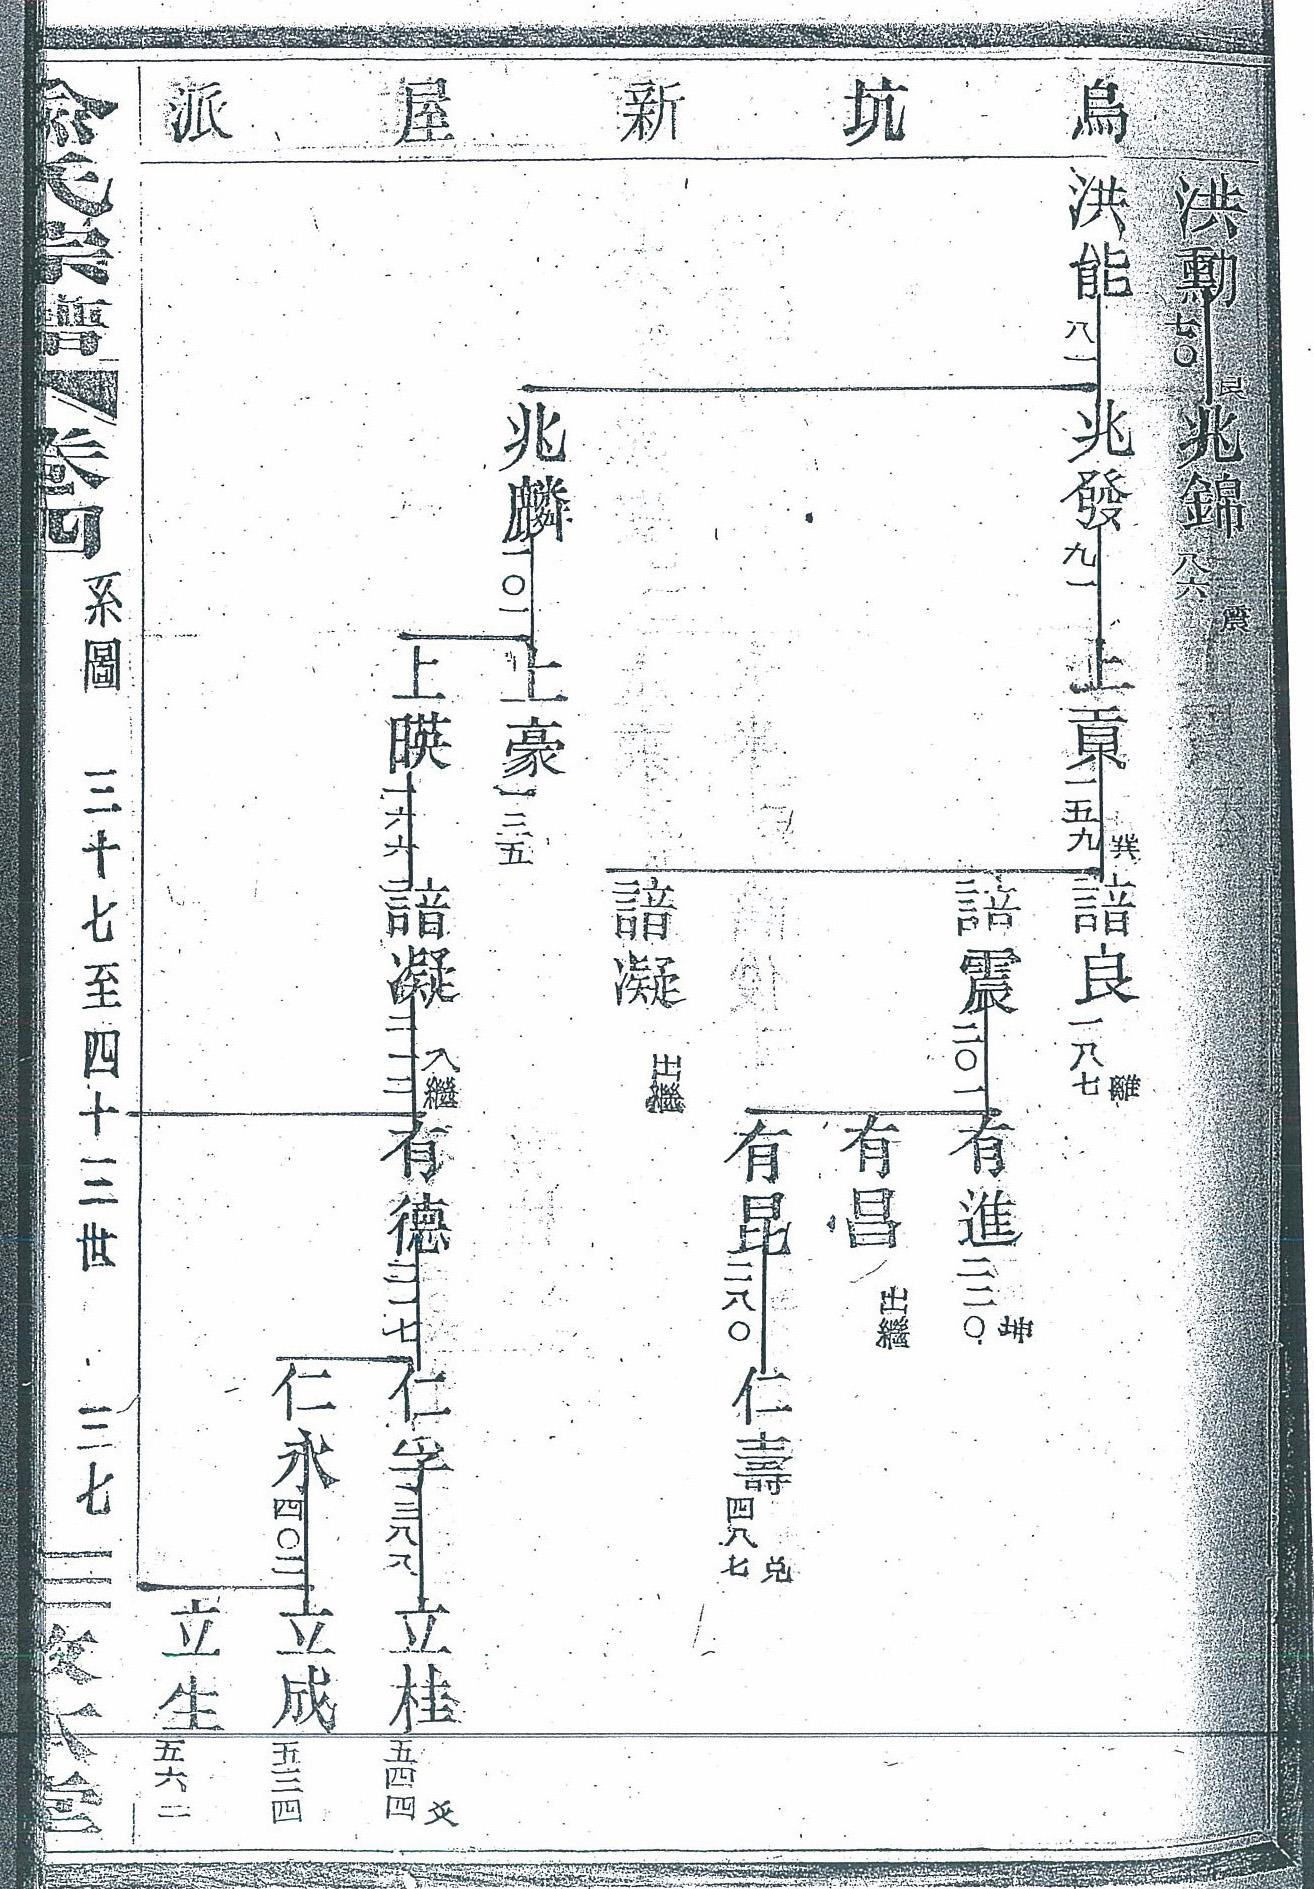 烏坑新屋派
洪勳 七〇 艮
兆錦 八六 震
洪能 八一
兆發 九一
上貢 一五九 巽
諳良 一八七 離
諳震 二〇一
有進 二二〇 坤
有昌 出繼
有昆 二八〇
仁壽 四八七 兌
諳凝 出繼
兆麟 一〇一
上豪 一三五
上暎 一六六
諳凝 二一二 入繼
有德 二一七
仁孚 三八八
立桂 五四四 爻
仁永 四〇二
立成 五三四
立生 五六二
俞氏宗譜 卷四 系圖 三十七至四十二世 三七 三